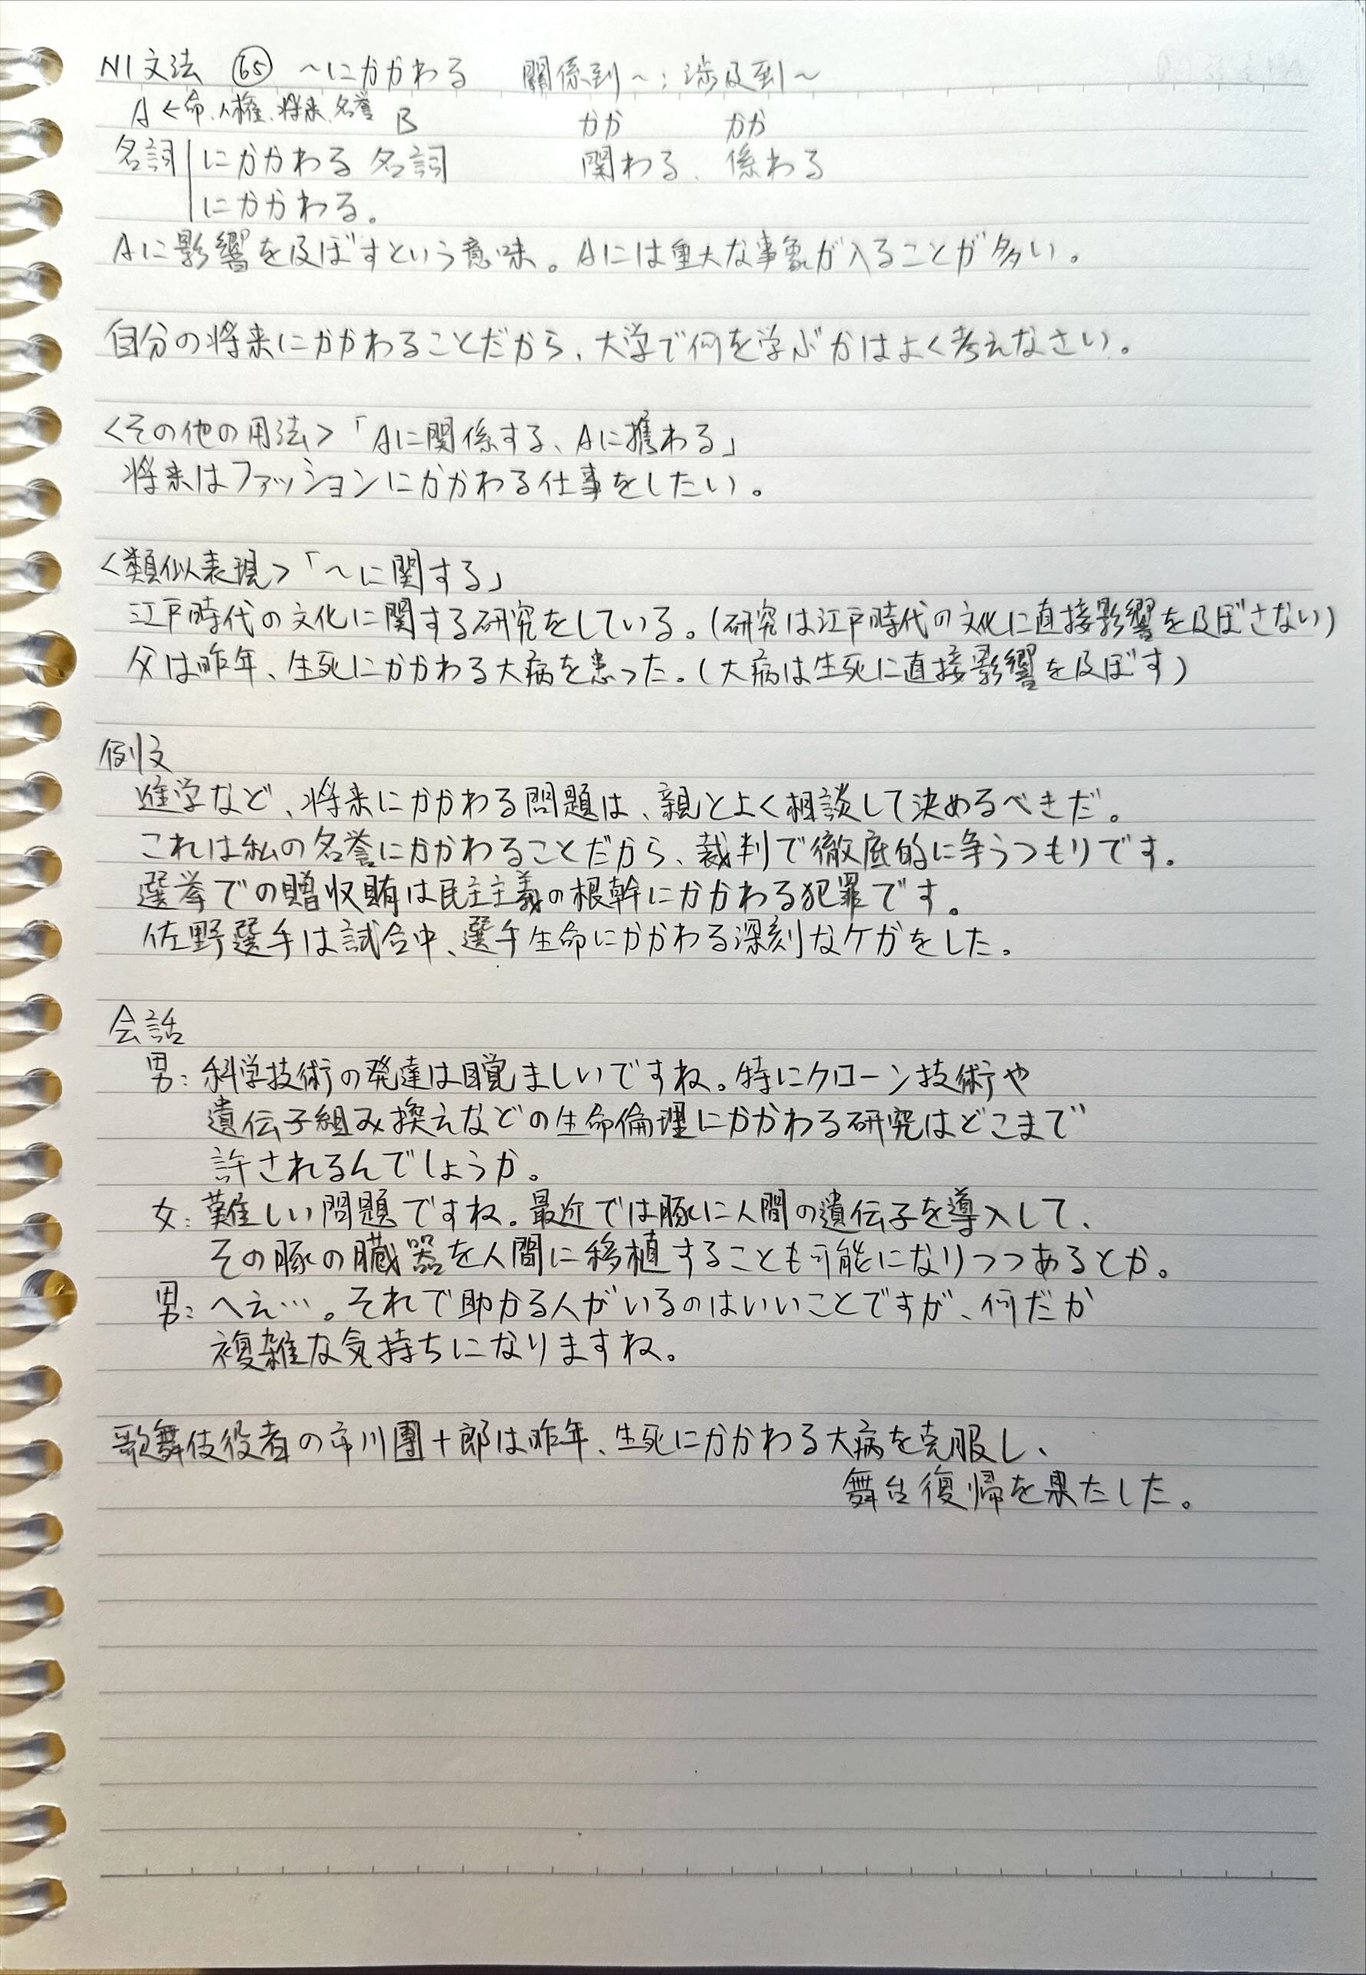 N1文法 65 ～にかかわる 關係到～；涉及到～
A＜命、人権、将来、名誉 B かか かか
名詞 にかかわる 名詞 関わる、係わる
にかかわる。
Aに影響を及ぼすという意味。Aには重大な事象が入ることが多い。
自分の将来にかかわることだから、大学で何を学ぶかはよく考えなさい。
＜その他の用法＞「Aに関係する、Aに携わる」
将来はファッションにかかわる仕事をしたい。
＜類似表現＞「～に関する」
江戸時代の文化に関する研究をしている。(研究は江戸時代の文化に直接影響を及ぼさない)
父は昨年、生死にかかわる大病を患った。(大病は生死に直接影響を及ぼす)
例文
進学など、将来にかかわる問題は、親とよく相談して決めるべきだ。
これは私の名誉にかかわることだから、裁判で徹底的に争うつもりです。
選挙での贈収賄は民主主義の根幹にかかわる犯罪です。
佐野選手は試合中、選手生命にかかわる深刻なケガをした。
会話
男：科学技術の発達は目覚ましいですね。特にクローン技術や
遺伝子組み換えなどの生命倫理にかかわる研究はどこまで
許されるんでしょうか。
女：難しい問題ですね。最近では豚に人間の遺伝子を導入して、
その豚の臓器を人間に移植することも可能になりつつあるとか。
男：へえ…。それで助かる人がいるのはいいことですが、何だか
複雑な気持ちになりますね。
歌舞伎役者の市川團十郎は昨年、生死にかかわる大病を克服し、
舞台復帰を果たした。